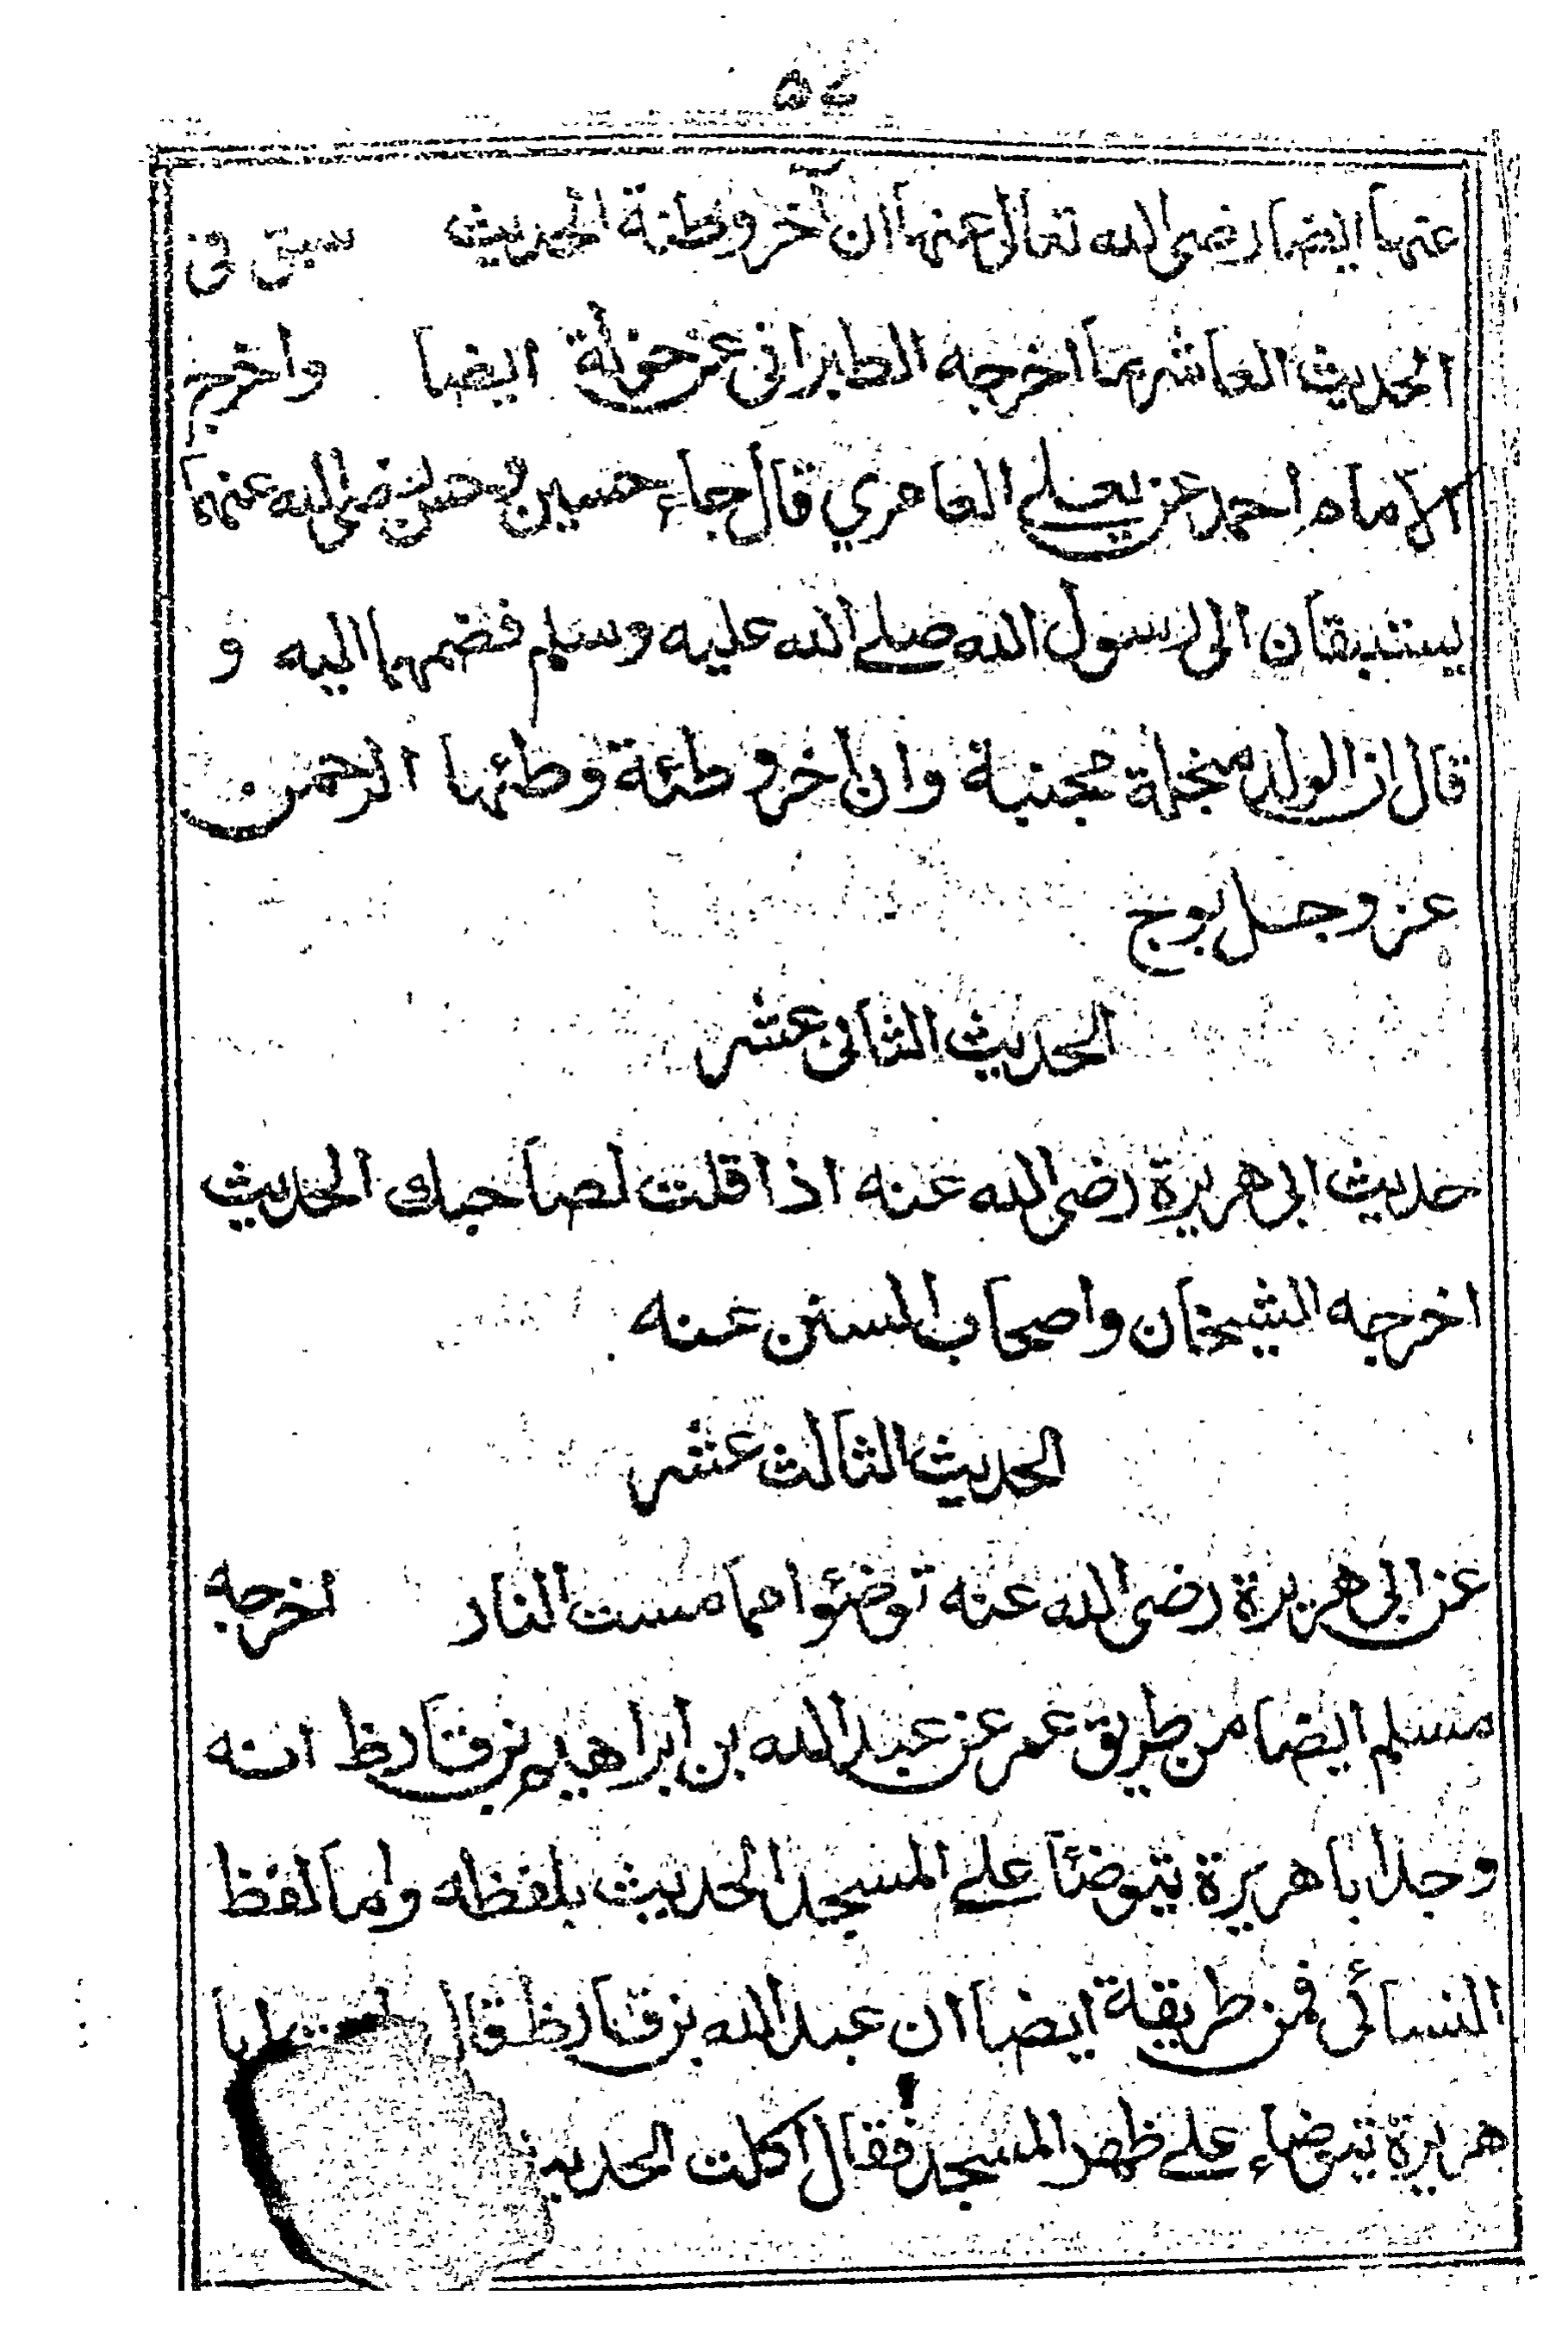 ٥٤
عنها ايضا رضى الله تعالى عنها ان آخر وطئة الحديث سبق فى
الحديث العاشر مما اخرجه الطبرانى عن خولة ايضا واخرج
الامام احمد عن يعلى العامري قال جاء حسين وحسن رضى الله عنهما
يستبقان الى رسول الله صلى الله عليه وسلم فضمهما اليه و
قال ان الولد مبخلة مجبنة وان اخر وطئة وطئها الرحمن
عز وجل بوج
الحديث الثانى عشر
حديث ابى هريرة رضى الله عنه اذا قلت لصاحبك الحديث
اخرجه الشيخان واصحاب السنن عنه
الحديث الثالث عشر
عن ابى هريرة رضى الله عنه توضئوا مما مست النار اخرجه
مسلم ايضا من طريق عمر عن عبد الله بن ابراهيم بن قارظ انه
وجد ابا هريرة يتوضئا على المسجد الحديث بلفظه واما لفظ
النسائى فمن طريقة ايضا ان عبد الله بن قارظ قال ابا
هريرة يتوضاء على ظهر المسجد فقال اكلت الحديث